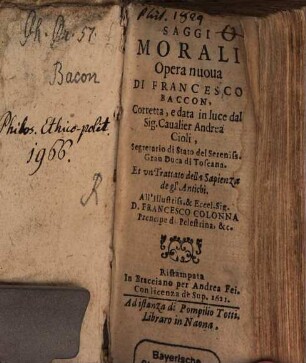 Ph. Pr. 57.
Bacon
Philos. Ethico-polit
1966.
R
Phil. 1929
SAGGI
MORALI
Opera nuoua
DI FRANCESCO
BACCON,
Corretta, e data in luce dal
Sig. Caualier Andrea
Cioli,
Segretario di Stato del Sereniss.
Gran Duca di Toscana.
Et un Trattato della Sapienza
degl'Antichi.
All'Illustriss. & Eccel. Sig.
D. FRANCESCO COLONNA
Prencipe di Palestrina, &c.
Ristampata
In Bracciano per Andrea Fei.
Con licenza de' Sup. 1621.
Ad istanza di Pompilio Totti
Libraro in Nauona,
Bayerische